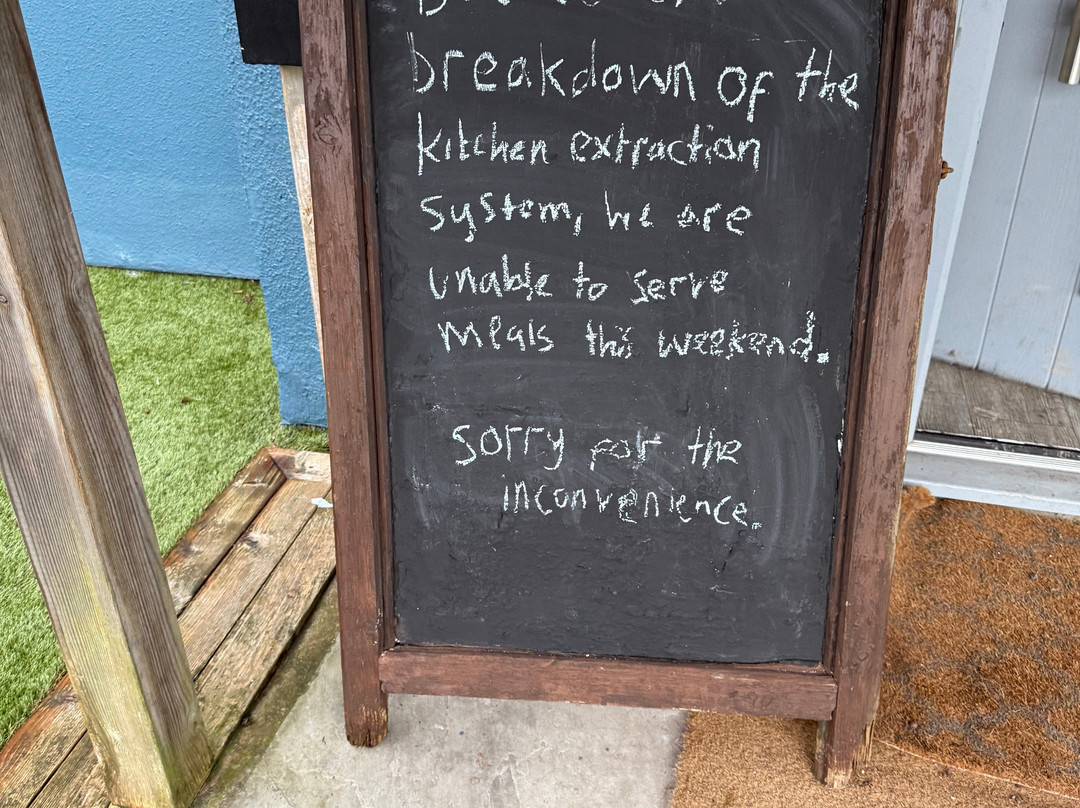 breakdown of the
kitchen extraction
system, we are
unable to serve
meals this weekend.
Sorry for the
inconvenience.